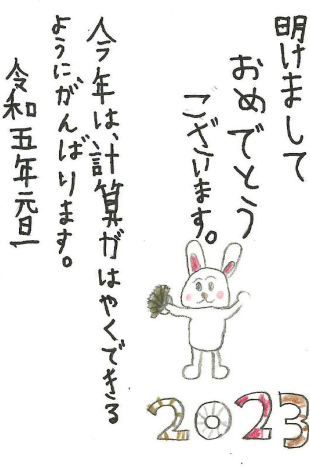 明けまして
おめでとう
ございます。
今年は、計算がはやくできる
ようにがんばります。
令和五年元旦
2023